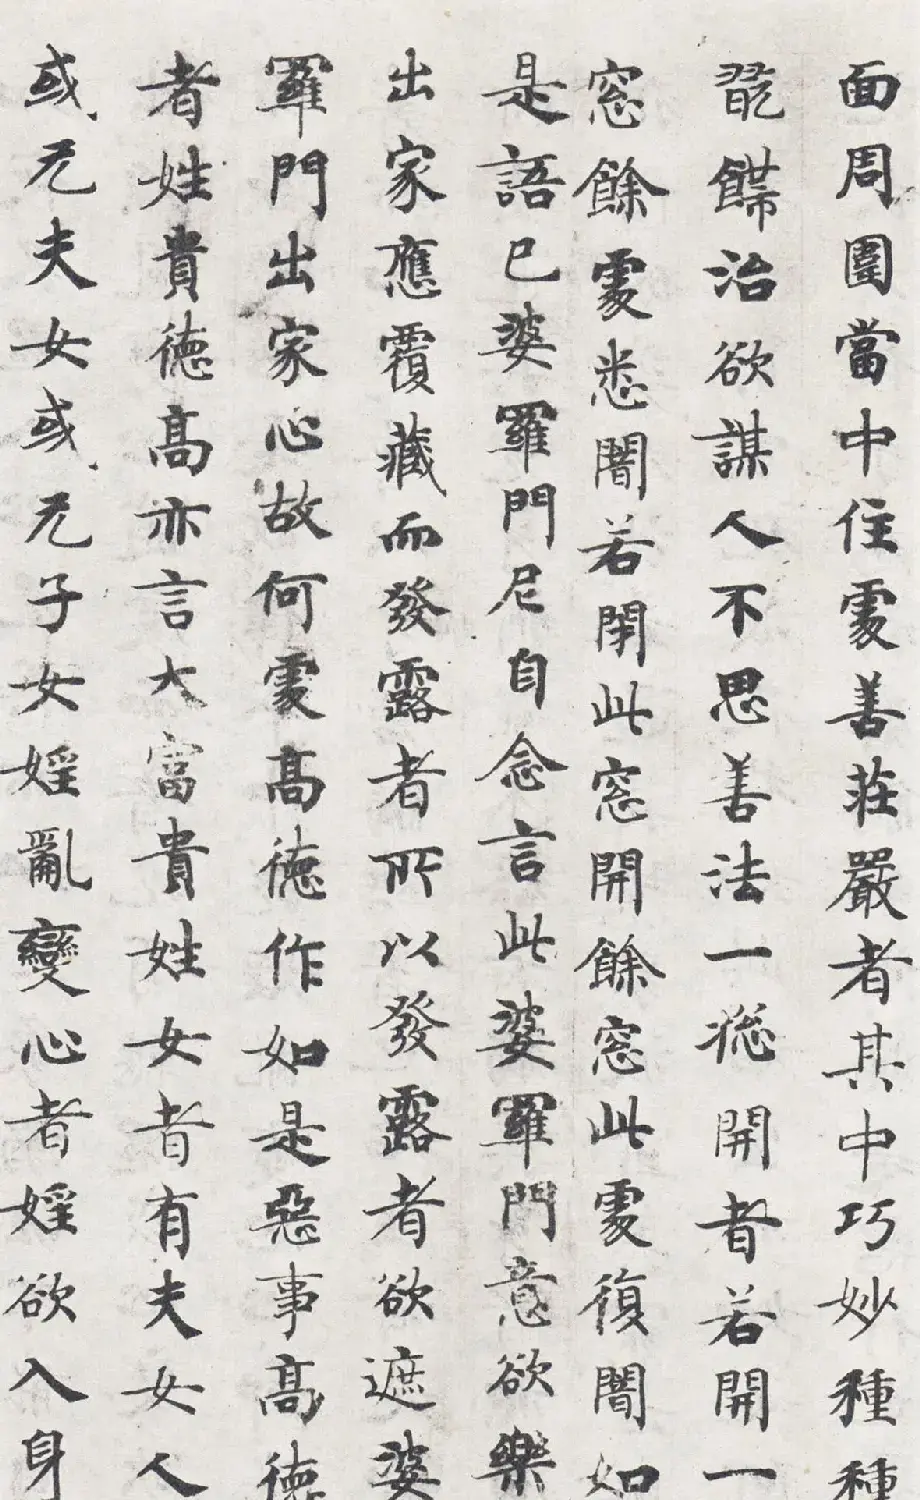 面周圍當中住處善莊嚴者其中巧妙種種
治欲謀人不思善法一㧾開者若開一
窓餘處悉闇若閇此窓開餘窓此處復闇如
是語已婆羅門尼自念言此婆羅門意欲樂
出家應覆藏而發露者所以發露者欲遮婆
羅門出家心故何處高德作如是惡事高德
者姓貴德高亦言大富貴姓女者有夫女人
或无夫女或无子女婬亂變心者婬欲入身